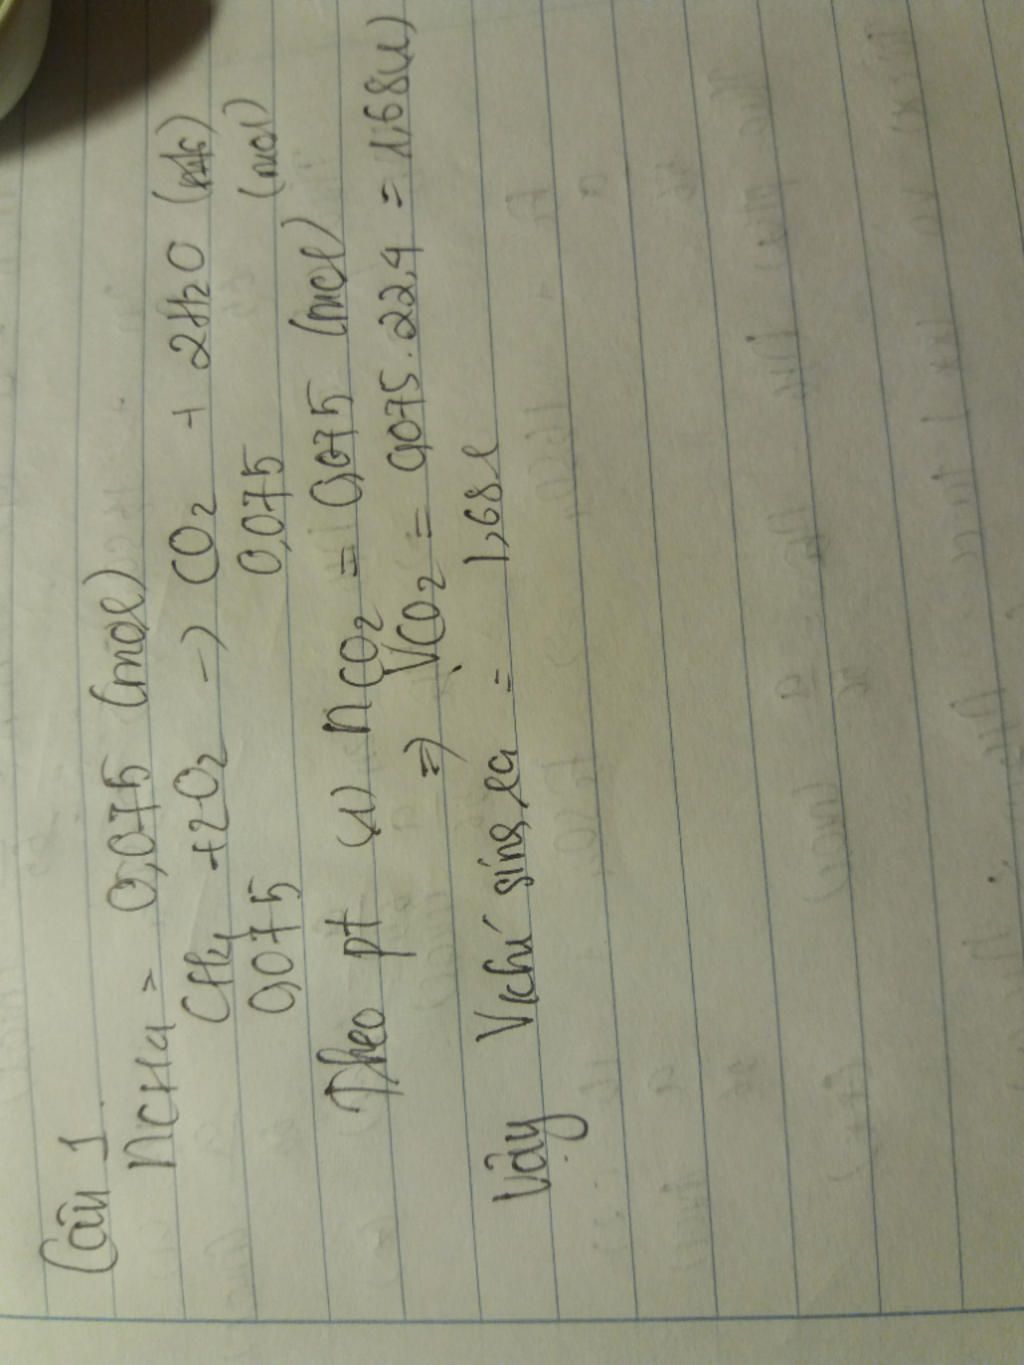 Câu 1
nCH4 = 0,075 (mol)
CH4 + 2O2 → CO2 + 2H2O
0,075 0,075 (mol)
Theo pt (1) nCO2 = 0,075 (mol)
=) VCO2 = 0,075.22,4 = 1,68(l)
Vậy Vkhí sing ra = 1,68l